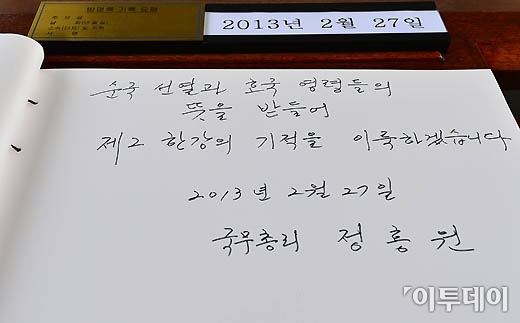 방명록 기록 요령
2013년 2월 27일
순국 선열과 호국 영령들의
뜻을 받들어
제2 한강의 기적을 이룩하겠습니다
2013년 2월 27일
국무총리 정홍원
이투데이